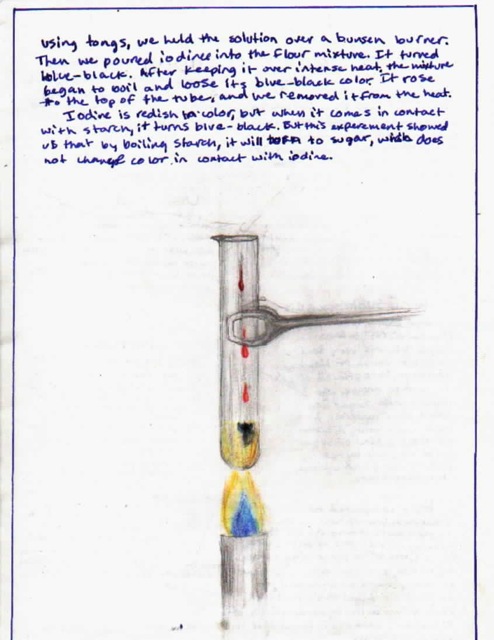 using tongs, we held the solution over a bunsen burner.
Then we poured iodine into the flour mixture. It turned
blue-black. After keeping it over intense heat, the mixture
began to boil and loose its blue-black color. It rose
to the top of the tube, and we removed it from the heat.
Iodine is redish in color, but when it comes in contact
with starch, it turns blue-black. But this experement showed
us that by boiling starch, it will turn to sugar, which does
not change color in contact with iodine.